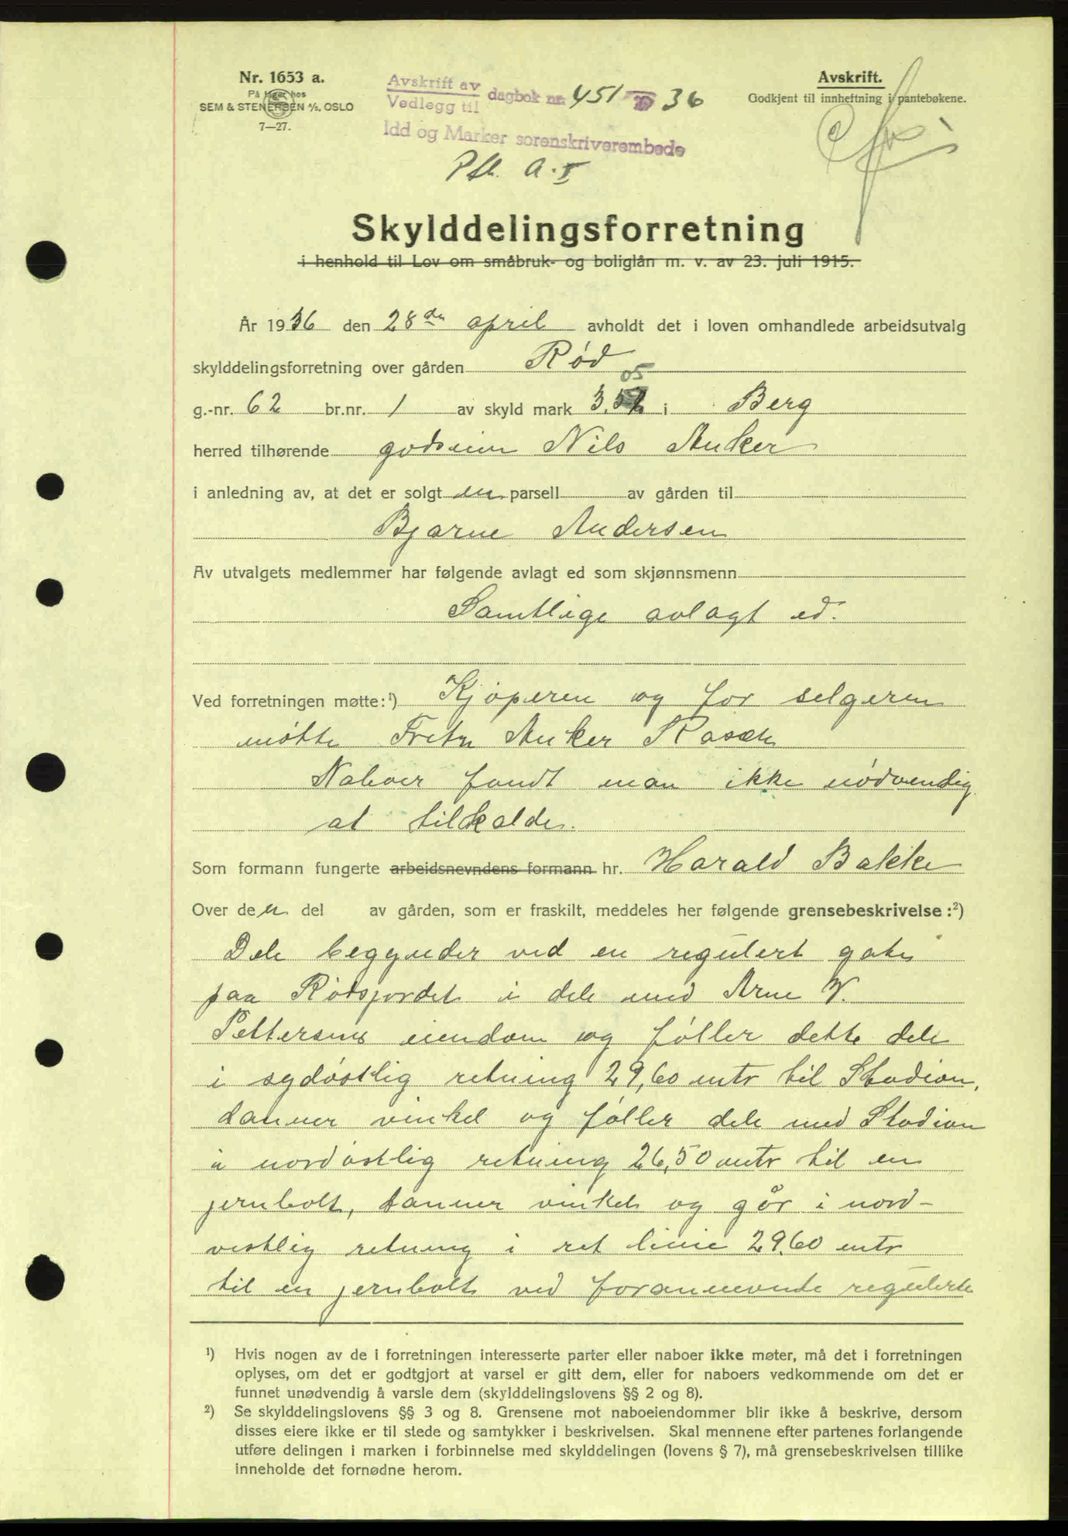 Nr. 1653 a.
På lager hos
SEM & STENERSEN A/S, OSLO
7—27.
Avskrift av dagbok nr. 451 1936
Vedlegg til
Idd og Marker sorenskriverembede
Avskrift.
Godkjent til innheftning i pantebøkene.
Skylddelingsforretning
i henhold til Lov om småbruk- og boliglån m. v. av 23. juli 1915.
År 1936 den 28de april avholdt det i loven omhandlede arbeidsutvalg
skylddelingsforretning over gården Rød
05
g.-nr. 62 br.nr. 1 av skyld mark 3, i Berg
herred tilhørende godseier Nils Anker
i anledning av, at det er solgt en parsell av gården til
Bjarne Andersen
Av utvalgets medlemmer har følgende avlagt ed som skjønnsmenn
Samtlige avlagt ed.
Ved forretningen møtte:¹) Kjøperen og for selgeren
møtte Fritz Anker Rasch
Naboer fandt man ikke nødvendig
at tilkalde.
Som formann fungerte arbeidsnevndens formann hr. Harald Bakke
Over den del av gården, som er fraskilt, meddeles her følgende grensebeskrivelse:²)
Dele begynder ved en regulert gate
paa Rødsjordet i dele med Arne V.
Pettersens eiendom og føller dette dele
i sydøstlig retning 29,60 mtr til Stadion,
danner vinkel og føller dele med Stadion
i nordøstlig retning 26,50 mtr til en
jernbolt, danner vinkel og går i nord-
vestlig retning i ret linie 29.60 mtr
til en jernbolt ved forannevnte regulerte
¹) Hvis nogen av de i forretningen interesserte parter eller naboer ikke møter, må det i forretningen
oplyses, om det er godtgjort at varsel er gitt dem, eller for naboers vedkommende om det er
funnet unødvendig å varsle dem (skylddelingslovens §§ 2 og 8).
²) Se skylddelingslovens §§ 3 og 8. Grensene mot naboeiendommer blir ikke å beskrive, dersom
disses eiere ikke er til stede og samtykker i beskrivelsen. Skal mennene efter partenes forlangende
utføre delingen i marken i forbinnelse med skylddelingen (lovens § 7), må grensebeskrivelsen tillike
inneholde det fornødne herom.